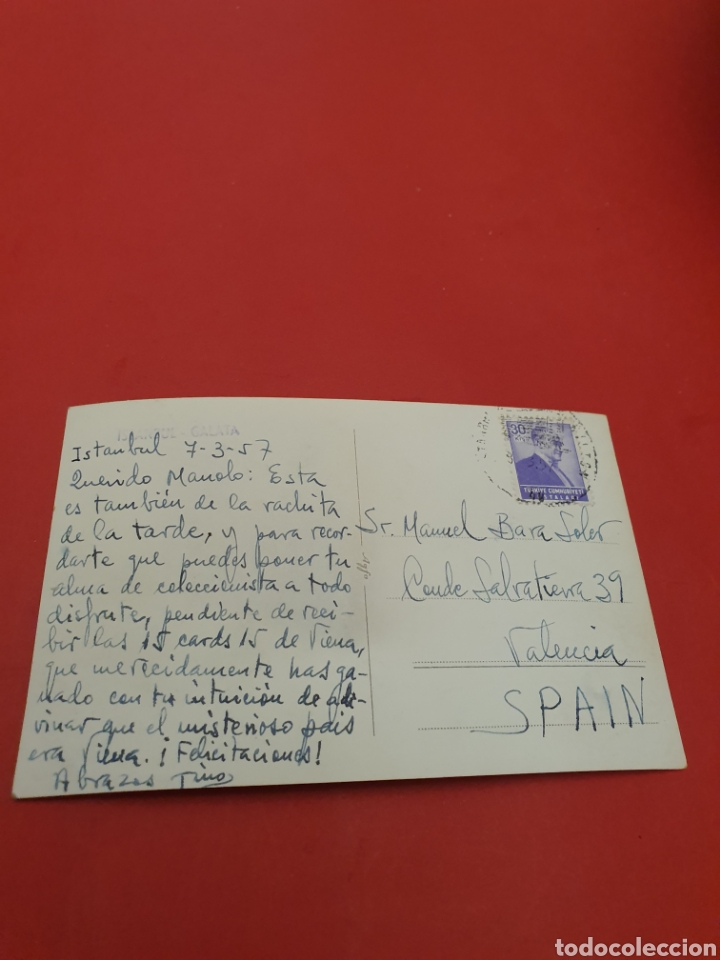 ISTANBUL - GALATA
Istanbul 7-3-57
Querido Manolo: Esta
es también de la rachita
de la tarde, y para recor-
darte que puedes poner tu
alma de coleccionista a todo
disfrute, pendiente de reci-
bir las 15 cards 15 de Viena,
que merecidamente has ga-
nado con tu intuición de adi-
vinar que el misterioso pais
era Viena. ¡Felicitaciones!
Abrazos Tino
30
TÜRKİYE CUMHURİYETİ
POSTALARI
Sr. Manuel Bara Soler
Conde Salvatierra 39
Valencia
SPAIN
todocoleccion